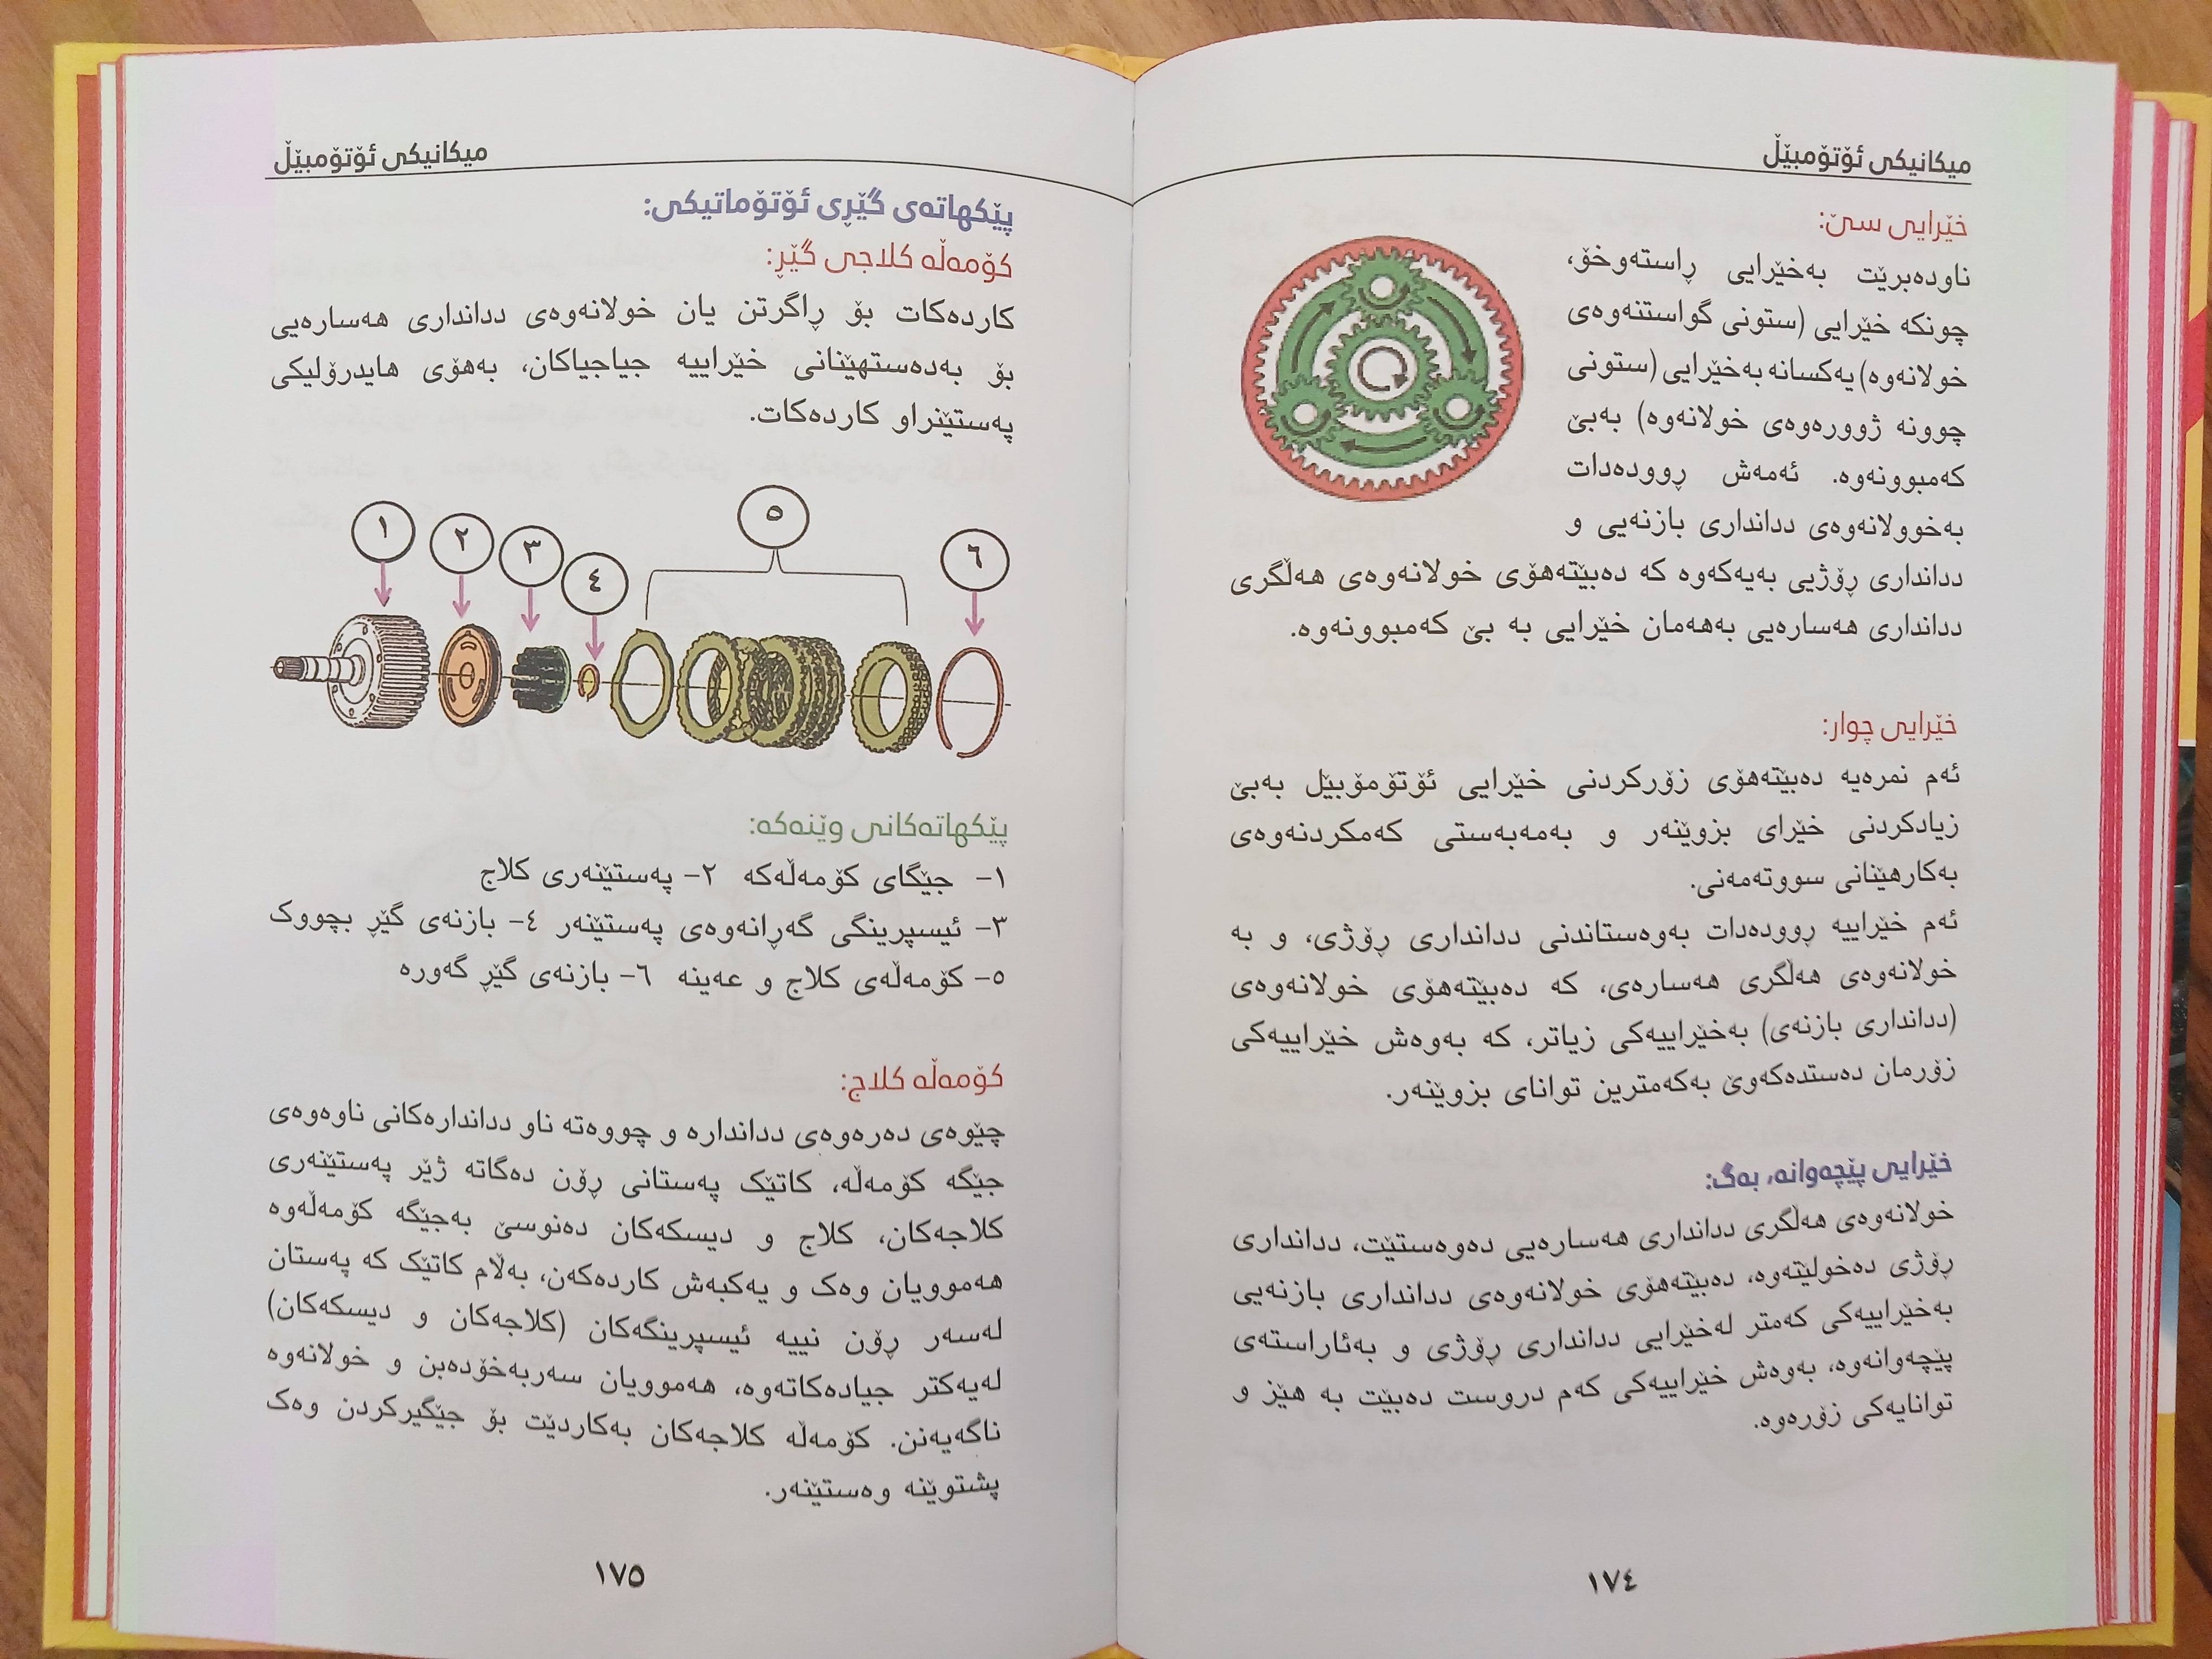 میکانیکی ئۆتۆمبێڵ
خێرایی سێ:
ناودەبرێت بەخێرایی ڕاستەوخۆ،
چونکە خێرایی (ستونی گواستنەوەی
خولانەوە) یەکسانە بەخێرایی (ستونی
چوونە ژوورەوەی خولانەوە) بەبێ
کەمبوونەوە. ئەمەش ڕوودەدات
بەخوولانەوەی ددانداری بازنەیی و
ددانداری ڕۆژیی بەیەکەوە کە دەبێتەهۆی خولانەوەی هەڵگری
ددانداری هەسارەیی بەهەمان خێرایی بە بێ کەمبوونەوە.
خێرایی چوار:
ئەم نمرەیە دەبێتەهۆی زۆرکردنی خێرایی ئۆتۆمۆبێل بەبێ
زیادکردنی خێرای بزوێنەر و بەمەبەستی کەمکردنەوەی
بەکارهێنانی سووتەمەنی.
ئەم خێراییە ڕوودەدات بەوەستاندنی ددانداری ڕۆژی، و بە
خولانەوەی هەڵگری هەسارەی، کە دەبێتەهۆی خولانەوەی
(ددانداری بازنەی) بەخێراییەکی زیاتر، کە بەوەش خێراییەکی
زۆرمان دەستدەکەوێ بەکەمترین توانای بزوێنەر.
خێرایی پێچەوانە، بەگ:
خولانەوەی هەڵگری ددانداری هەسارەیی دەوەستێت، ددانداری
ڕۆژی دەخولێتەوە، دەبێتەهۆی خولانەوەی ددانداری بازنەیی
بەخێراییەکی کەمتر لەخێرایی ددانداری ڕۆژی و بەئاراستەی
پێچەوانەوە، بەوەش خێراییەکی کەم دروست دەبێت بە هێز و
توانایەکی زۆرەوە.
١٧٤
میکانیکی ئۆتۆمبێڵ
پێکهاتەی گێڕی ئۆتۆماتیکی:
کۆمەڵە کلاجی گێڕ:
کاردەکات بۆ ڕاگرتن یان خولانەوەی ددانداری هەسارەیی
بۆ بەدەستهێنانی خێراییە جیاجیاکان، بەهۆی هایدرۆلیکی
پەستێنراو کاردەکات.
١
٢
٣
٤
٥
٦
پێکهاتەکانی وێنەکە:
١- جێگای کۆمەڵەکە ٢- پەستێنەری کلاج
٣- ئیسپرینگی گەڕانەوەی پەستێنەر ٤- بازنەی گێڕ بچووک
٥- کۆمەڵەی کلاج و عەینە ٦- بازنەی گێڕ گەورە
کۆمەڵە کلاج:
چێوەی دەرەوەی ددانداره و چووەتە ناو دداندارەکانی ناوەوەی
جێگە کۆمەڵە، کاتێک پەستانی ڕۆن دەگاتە ژێر پەستێنەری
کلاجەکان، کلاج و دیسکەکان دەنوسێ بەجێگە کۆمەڵەوە
هەموویان وەک و یەکبەش کاردەکەن، بەڵام کاتێک کە پەستان
لەسەر ڕۆن نییە ئیسپرینگەکان (کلاجەکان و دیسکەکان)
لەیەکتر جیادەکاتەوە، هەموویان سەربەخۆدەبن و خولانەوە
ناگەیەنن. کۆمەڵە کلاجەکان بەکاردێت بۆ جێگیرکردن وەک
پشتوێنە وەستێنەر.
١٧٥